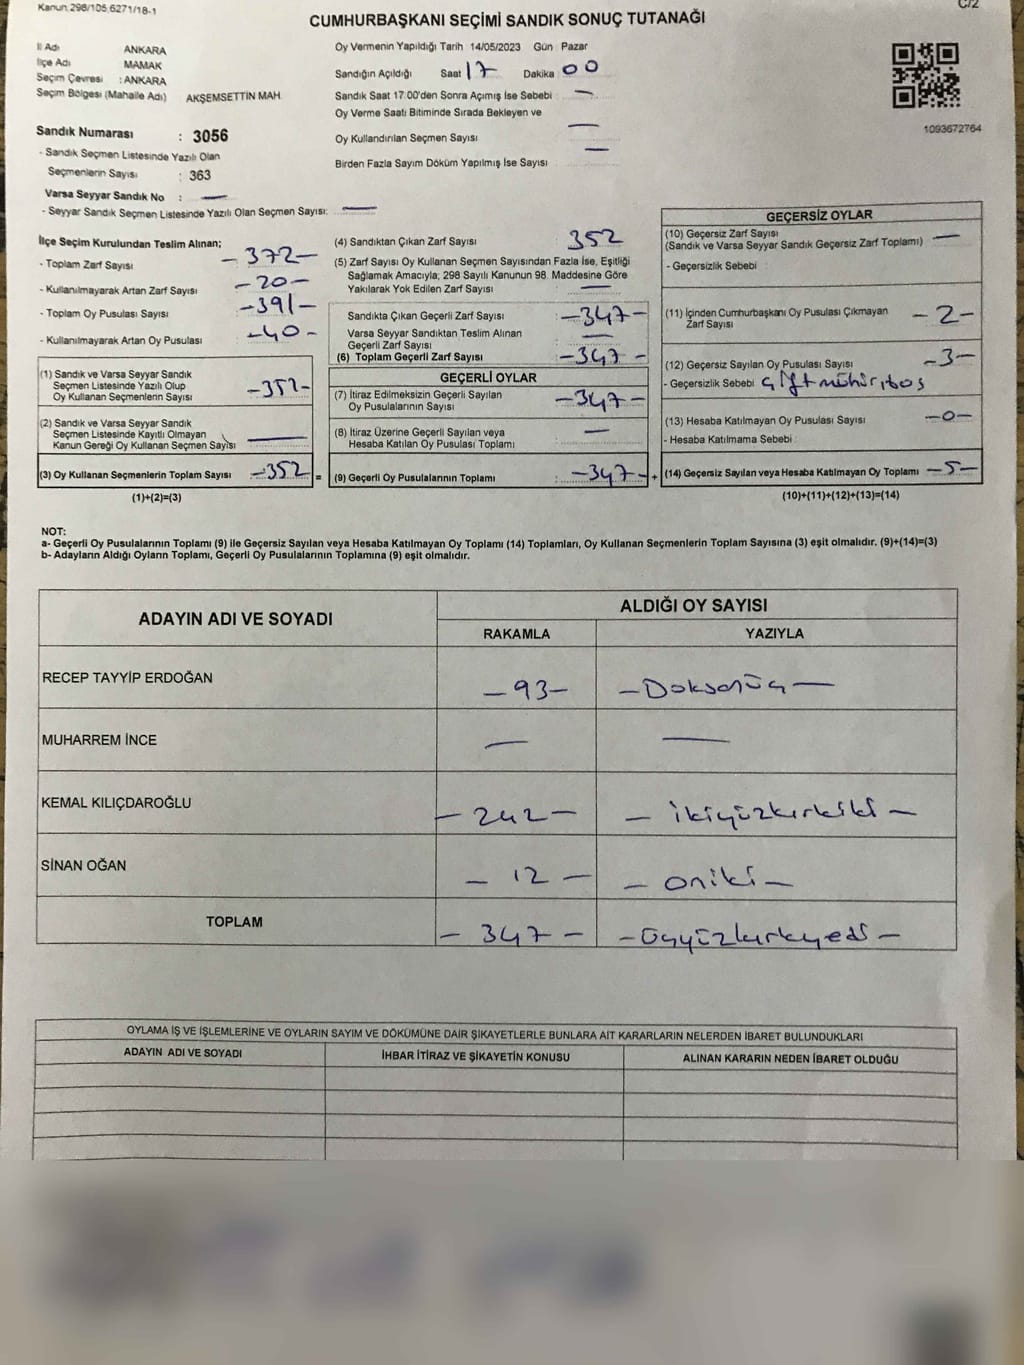 Kanun.298/105,6271/18-1
C/2
CUMHURBAŞKANI SEÇİMİ SANDIK SONUÇ TUTANAĞI
İl Adı ANKARA
İlçe Adı MAMAK
Seçim Çevresi : ANKARA
Seçim Bölgesi (Mahalle Adı) AKŞEMSETTİN MAH
Sandık Numarası : 3056
- Sandık Seçmen Listesinde Yazılı Olan
Seçmenlerin Sayısı : 363
Varsa Seyyar Sandık No : —
- Seyyar Sandık Seçmen Listesinde Yazılı Olan Seçmen Sayısı: —
Oy Vermenin Yapıldığı Tarih 14/05/2023 Gün Pazar
Sandığın Açıldığı Saat 17 Dakika 00
Sandık Saat 17:00'den Sonra Açımış İse Sebebi —
Oy Verme Saati Bitiminde Sırada Bekleyen ve
Oy Kullandırılan Seçmen Sayısı —
Birden Fazla Sayım Döküm Yapılmış İse Sayısı —
1093672764
İlçe Seçim Kurulundan Teslim Alınan;
- Toplam Zarf Sayısı -372-
- Kullanılmayarak Artan Zarf Sayısı -20-
- Toplam Oy Pusulası Sayısı -391-
- Kullanılmayarak Artan Oy Pusulası -40-
(1) Sandık ve Varsa Seyyar Sandık
Seçmen Listesinde Yazılı Olup
Oy Kullanan Seçmenlerin Sayısı -352-
(2) Sandık ve Varsa Seyyar Sandık
Seçmen Listesinde Kayıtlı Olmayan
Kanun Gereği Oy Kullanan Seçmen Sayısı —
(3) Oy Kullanan Seçmenlerin Toplam Sayısı -352- =
(1)+(2)=(3)
(4) Sandıktan Çıkan Zarf Sayısı : 352
(5) Zarf Sayısı Oy Kullanan Seçmen Sayısından Fazla İse, Eşitliği
Sağlamak Amacıyla; 298 Sayılı Kanunun 98. Maddesine Göre
Yakılarak Yok Edilen Zarf Sayısı —
Sandıkta Çıkan Geçerli Zarf Sayısı : -347-
Varsa Seyyar Sandıktan Teslim Alınan
Geçerli Zarf Sayısı : —
(6) Toplam Geçerli Zarf Sayısı : -347-
GEÇERLİ OYLAR
(7) İtiraz Edilmeksizin Geçerli Sayılan
Oy Pusulalarının Sayısı : -347-
(8) İtiraz Üzerine Geçerli Sayılan veya
Hesaba Katılan Oy Pusulası Toplamı : —
(9) Geçerli Oy Pusulalarının Toplamı : -347- +
GEÇERSİZ OYLAR
(10) Geçersiz Zarf Sayısı —
(Sandık ve Varsa Seyyar Sandık Geçersiz Zarf Toplamı)
- Geçersizlik Sebebi :
(11) İçinden Cumhurbaşkanı Oy Pusulası Çıkmayan
Zarf Sayısı -2-
(12) Geçersiz Sayılan Oy Pusulası Sayısı -3-
- Geçersizlik Sebebi çift mühür, boş
(13) Hesaba Katılmayan Oy Pusulası Sayısı -0-
- Hesaba Katılmama Sebebi :
(14) Geçersiz Sayılan veya Hesaba Katılmayan Oy Toplamı -5-
(10)+(11)+(12)+(13)=(14)
NOT:
a- Geçerli Oy Pusulalarının Toplamı (9) ile Geçersiz Sayılan veya Hesaba Katılmayan Oy Toplamı (14) Toplamları, Oy Kullanan Seçmenlerin Toplam Sayısına (3) eşit olmalıdır. (9)+(14)=(3)
b- Adayların Aldığı Oyların Toplamı, Geçerli Oy Pusulalarının Toplamına (9) eşit olmalıdır.
ADAYIN ADI VE SOYADI ALDIĞI OY SAYISI
RAKAMLA YAZIYLA
RECEP TAYYİP ERDOĞAN -93- -Doksanüç-
MUHARREM İNCE — —
KEMAL KILIÇDAROĞLU -242- -ikiyüzkırkiki-
SİNAN OĞAN -12- -oniki-
TOPLAM -347- -üçyüzkırkyedi-
OYLAMA İŞ VE İŞLEMLERİNE VE OYLARIN SAYIM VE DÖKÜMÜNE DAİR ŞİKAYETLERLE BUNLARA AİT KARARLARIN NELERDEN İBARET BULUNDUKLARI
ADAYIN ADI VE SOYADI İHBAR İTİRAZ VE ŞİKAYETİN KONUSU ALINAN KARARIN NEDEN İBARET OLDUĞU